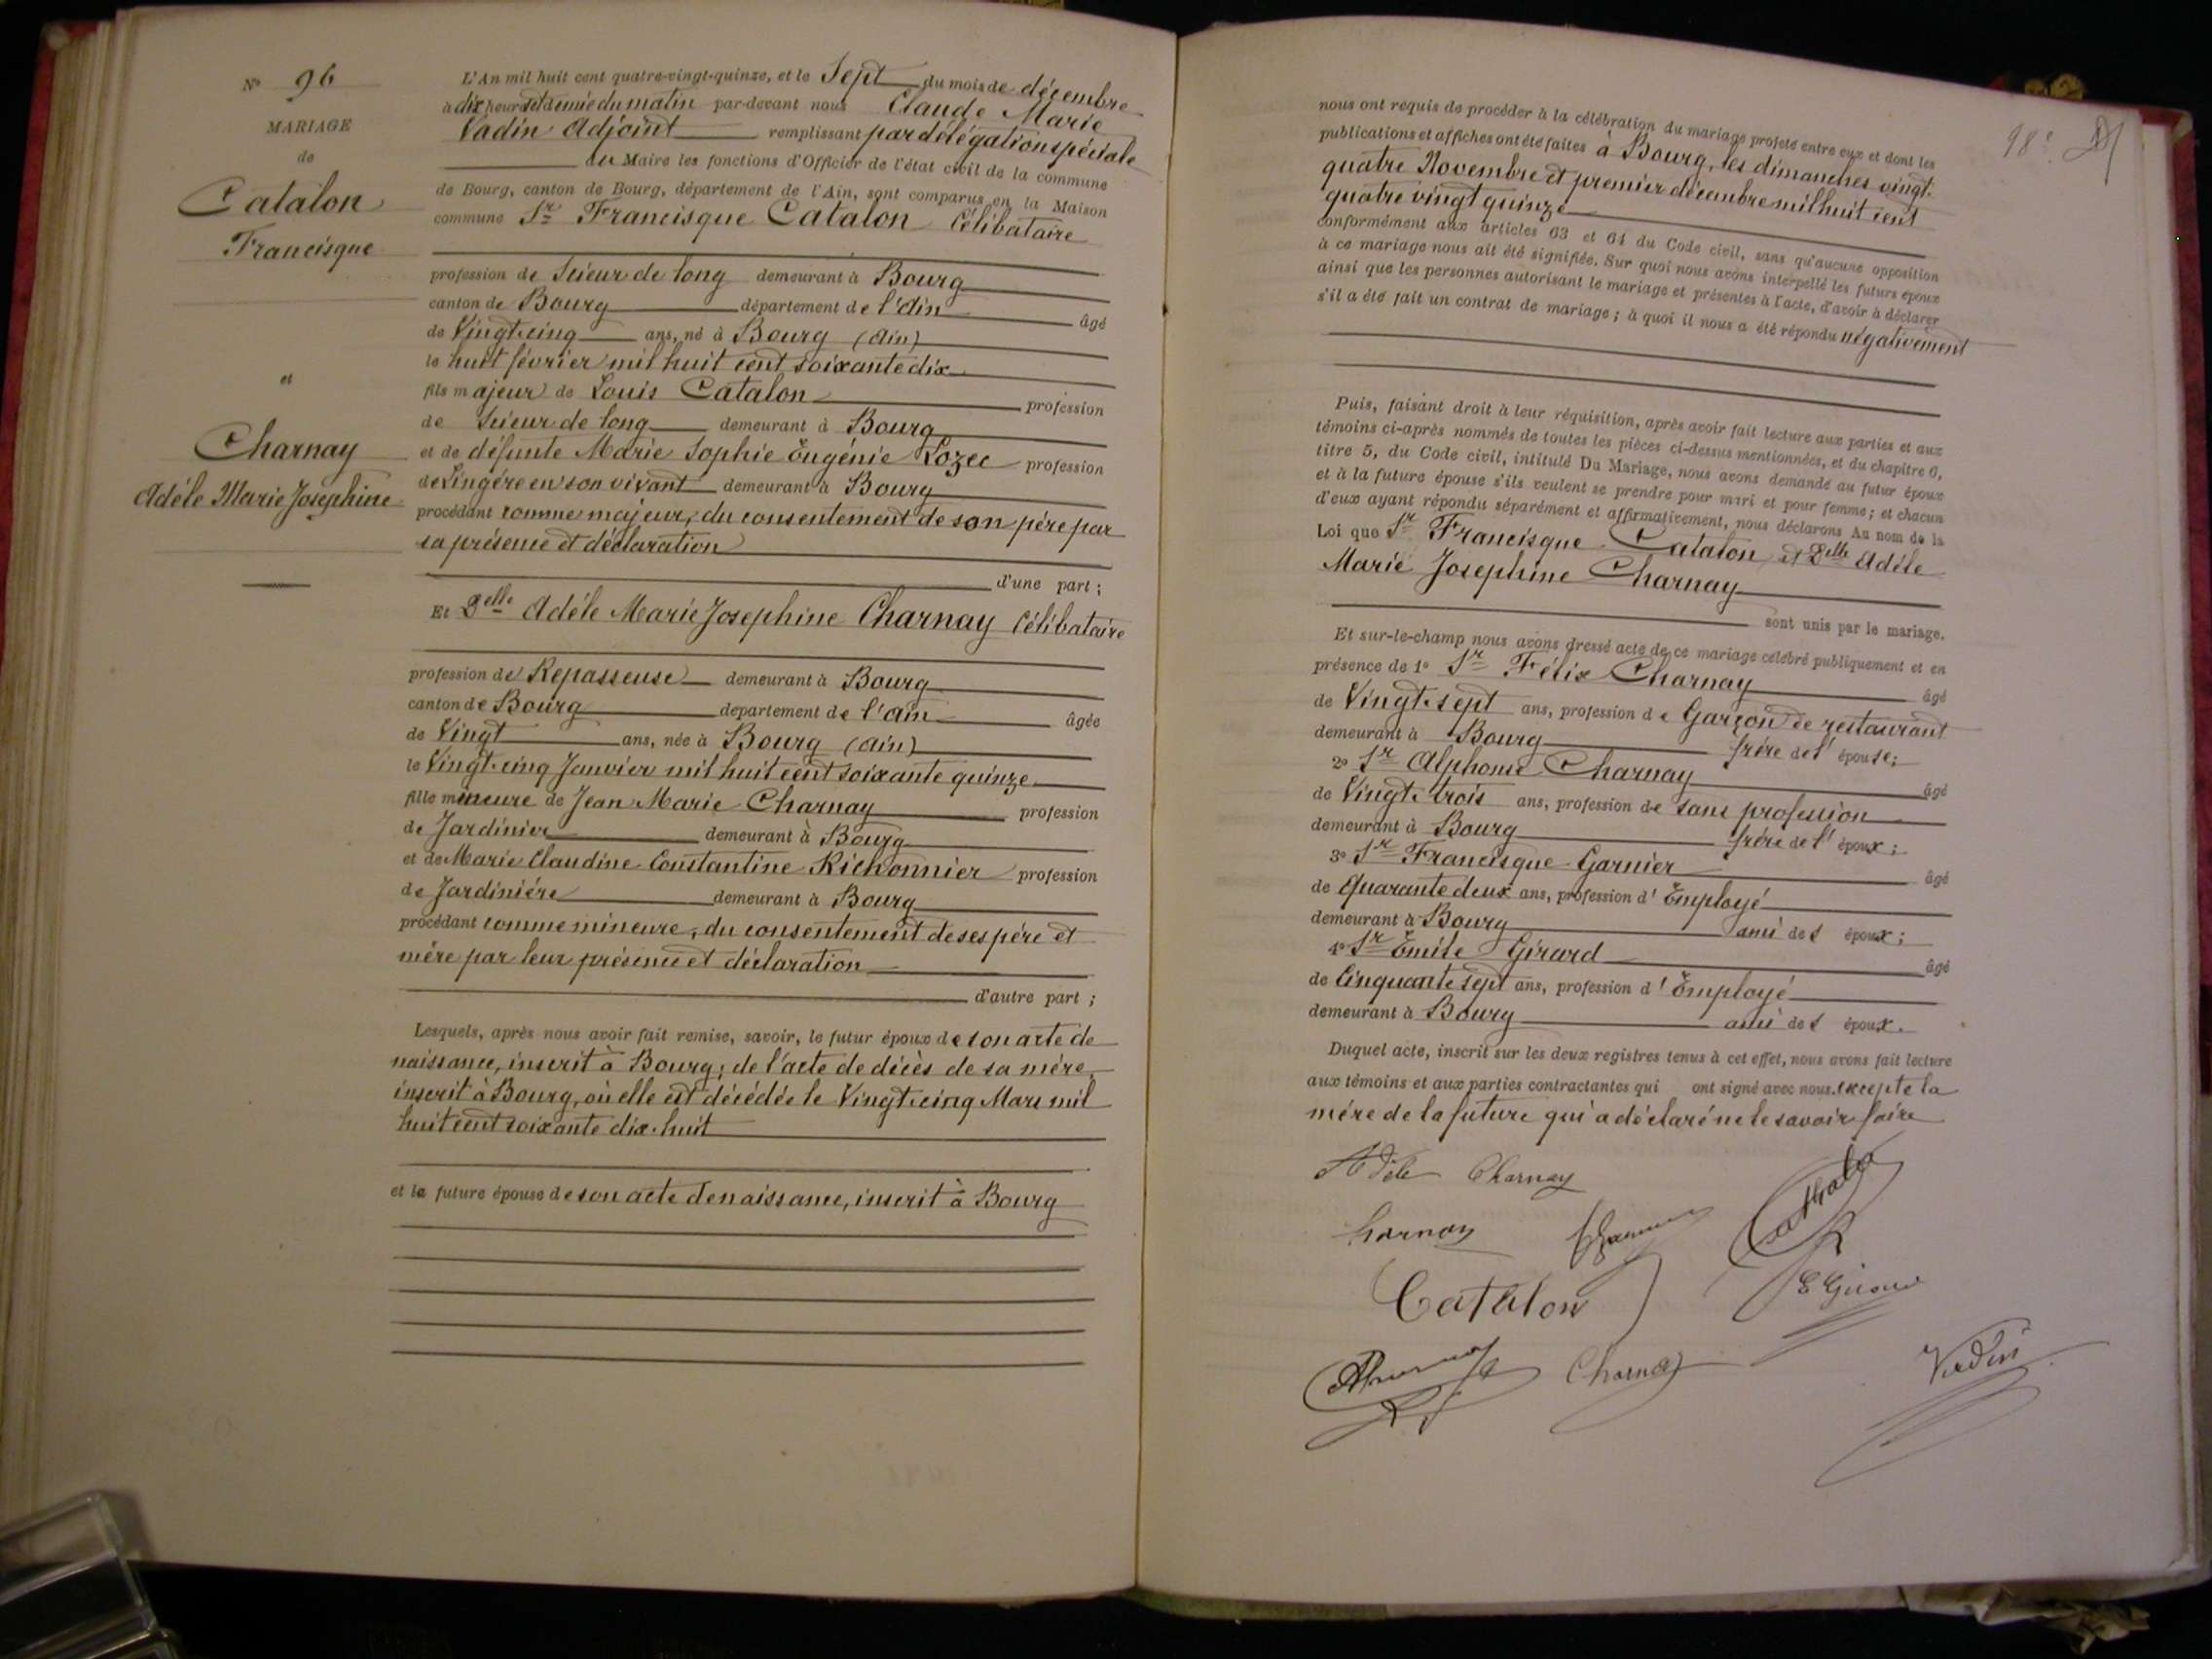 N° 96
MARIAGE
de
Catalon
Francisque
et
Charnay
Adèle Marie Josephine
L'An mil huit cent quatre-vingt-quinze, et le Sept du mois de décembre
à dix heures et demie du matin par-devant nous Claude Marie
Vadin Adjoint remplissant par délégation spéciale
du Maire les fonctions d'Officier de l'état civil de la commune
de Bourg, canton de Bourg, département de l'Ain, sont comparus en la Maison
commune Sr Francisque Catalon Célibataire
profession de Scieur de long demeurant à Bourg
canton de Bourg département de l'Ain âgé
de Vingt-cinq ans, né à Bourg (Ain)
le huit février mil huit cent soixante dix
fils majeur de Louis Catalon profession
de Scieur de long demeurant à Bourg
et de défunte Marie Sophie Eugénie Lozec profession
de Lingère en son vivant demeurant à Bourg
procédant comme majeur, du consentement de son père par
sa présence et déclaration
d'une part ;
Et Delle Adèle Marie Josephine Charnay Célibataire
profession de Repasseuse demeurant à Bourg
canton de Bourg département de l'ain âgée
de Vingt ans, née à Bourg (ain)
le Vingt-cinq Janvier mil huit cent soixante quinze
fille mineure de Jean Marie Charnay profession
de Jardinier demeurant à Bourg
et de Marie Claudine Constantine Richonnier profession
de Jardinière demeurant à Bourg
procédant comme mineure, du consentement de ses père et
mère par leur présence et déclaration
d'autre part ;
Lesquels, après nous avoir fait remise, savoir, le futur époux de son acte de
naissance, inscrit à Bourg ; de l'acte de décès de sa mère,
inscrit à Bourg, où elle est décédée le Vingt-cinq Mars mil
huit cent soixante dix-huit
et la future épouse de son acte de naissance, inscrit à Bourg
98e
nous ont requis de procéder à la célébration du mariage projeté entre eux et dont les
publications et affiches ont été faites à Bourg, les dimanches vingt-
quatre Novembre et premier décembre mil huit cent
quatre vingt quinze
conformément aux articles 63 et 64 du Code civil, sans qu'aucune opposition
à ce mariage nous ait été signifiée. Sur quoi nous avons interpellé les futurs époux
ainsi que les personnes autorisant le mariage et présentes à l'acte, d'avoir à déclarer
s'il a été fait un contrat de mariage ; à quoi il nous a été répondu négativement
Puis, faisant droit à leur réquisition, après avoir fait lecture aux parties et aux
témoins ci-après nommés de toutes les pièces ci-dessus mentionnées, et du chapitre 6,
titre 5, du Code civil, intitulé Du Mariage, nous avons demandé au futur époux
et à la future épouse s'ils veulent se prendre pour mari et pour femme ; et chacun
d'eux ayant répondu séparément et affirmativement, nous déclarons Au nom de la
Loi que Sr Francisque Catalon et Delle Adèle
Marie Josephine Charnay
sont unis par le mariage.
Et sur-le-champ nous avons dressé acte de ce mariage célébré publiquement et en
présence de 1° Sr Félix Charnay âgé
de Vingt-sept ans, profession de Garçon de restaurant
demeurant à Bourg frère de l'épouse ;
2° Sr Alphonse Charnay âgé
de Vingt-trois ans, profession de sans profession
demeurant à Bourg frère de l'époux ;
3° Sr Francisque Garnier âgé
de Quarante deux ans, profession d'Employé
demeurant à Bourg ami des époux ;
4° Sr Emile Girard âgé
de Cinquante sept ans, profession d'Employé
demeurant à Bourg ami des époux.
Duquel acte, inscrit sur les deux registres tenus à cet effet, nous avons fait lecture
aux témoins et aux parties contractantes qui ont signé avec nous. excepté la
mère de la future qui a déclaré ne le savoir faire
Adèle Charnay
Charnay
Catalon
E Girard
Charnay
Vadin